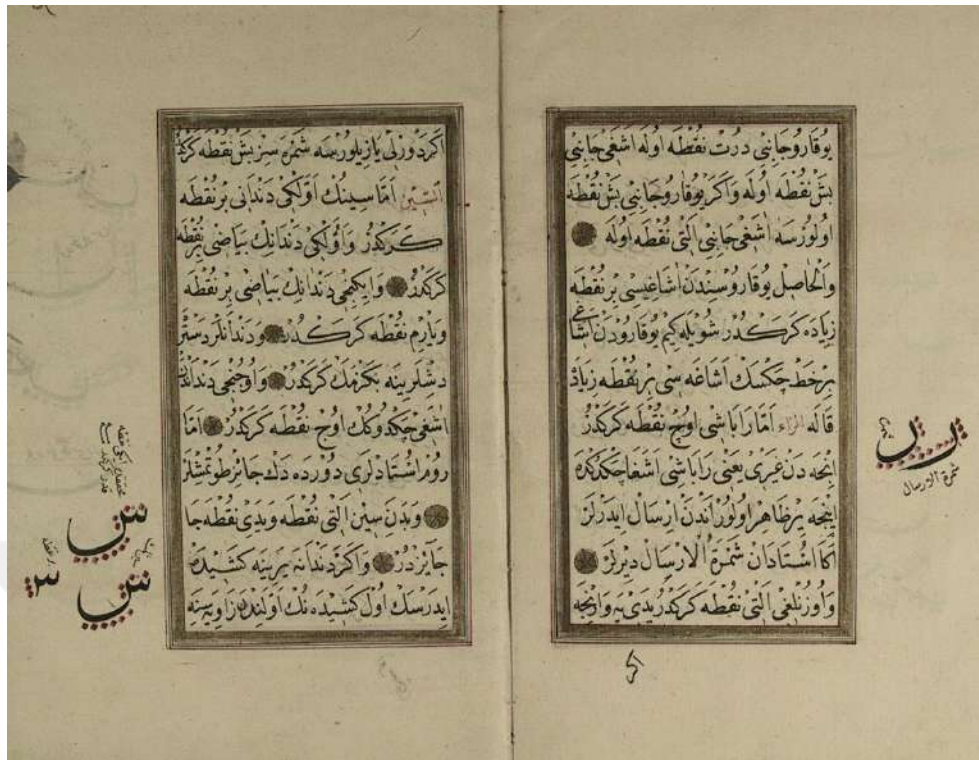 يوقارو جانبى درت نقطه اوله اشغى جانبى
بش نقطه اوله واكر يوقارو جانبى بش نقطه
اولورسه اشغى جانبى التى نقطه اوله
والحاصل يوقاروسندن اشاغيسى بر نقطه
زياده كركدر شويله كيم يوقارودن اشاغى
بر خط چكسك اشاغه سى بر نقطه زياد
قاله الراء امّا را باشى اوچ نقطه كركدر
انجه دن غيرى يعنى را باشى اشغا چكدكده
اينجه ير ظاهر اولور اندن ارسال ايدرلر
اكا استادان شمرة الارسال ديرلر
واوزنلغى التى نقطه كركدر يدى يه وارنجه
اكر
شمرة الارسال
اكر دوزلى يازيلورسه شمره سز بش نقطه كركدر
السين امّا سينك اوّلكى دندانى بر نقطه
كركدر واوّلكى دندانك بياضى بر نقطه
كركدر وايكنجى دندانك بياضى بر نقطه
ويارم نقطه كركدر ودندانلر دستره
دشلرينه بكزمك كركدر واوچنجى دنداندن
اشغى چكدوكك اوچ نقطه كركدر امّا
روم استادلرى دورده دك جائز طوتمشلر
وبدن سين التى نقطه ويدى نقطه جا
جايزدر واكر دندانه يرينه كشيده
ايدرسك اول كشيده نك اولندن زاويه سنه
س
س